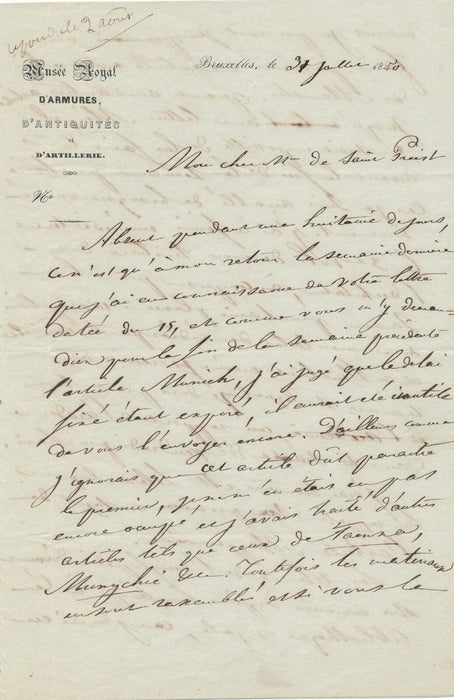 répondu le 2 août
Musée Royal
D'ARMURES,
D'ANTIQUITÉS
ET
D'ARTILLERIE.
No
Bruxelles, le 31 juillet 1850
Mon cher Mr de Saint Priest
Absent pendant une huitaine de jours,
ce n'est qu'à mon retour la semaine dernière
que j'ai eu connaissance de votre lettre
datée du 15, et comme vous m'y deman-
diez pour la fin de la semaine précédente
l'article Munich, j'ai jugé que le délai
fixé étant expiré, il aurait été inutile
de vous l'envoyer encore. D'ailleurs comme
j'ignorais que cet article dût paraître
le premier, je ne m'en étais pas
encore occupé, et j'avais traité d'autres
articles tels que ceux de Faenza,
Munychie &c. Toutefois les matériaux
en sont rassemblés et si vous le